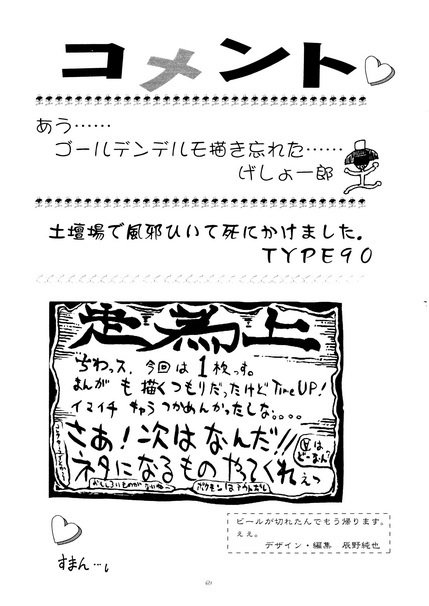 コメント
あう……
ゴールデンデルモ描き忘れた……
げしょ一郎
土壇場で風邪ひいて死にかけました。
TYPE90
走為上
ちわっス、今回は1枚っす。
まんが も 描くつもりだったけど TimeUP!
イマイチ キャラ つかめんかったしな。。。。
さあ！次はなんだ!!
ネタになるもの やってくれぇっ
ビールが切れたんでもう帰ります。
ええ。
デザイン・編集 辰野純也
すまん…